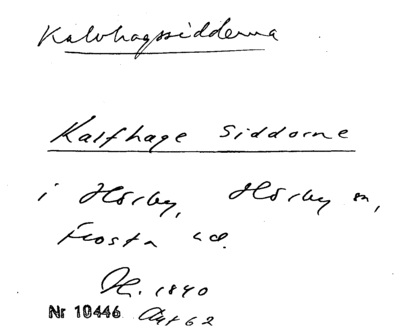 Kalvhagssidderna
Kalfhage Siddorne
i Hörby, Hörby sn,
Frosta hd.
H. 1840
Nr 10446 Akt 62